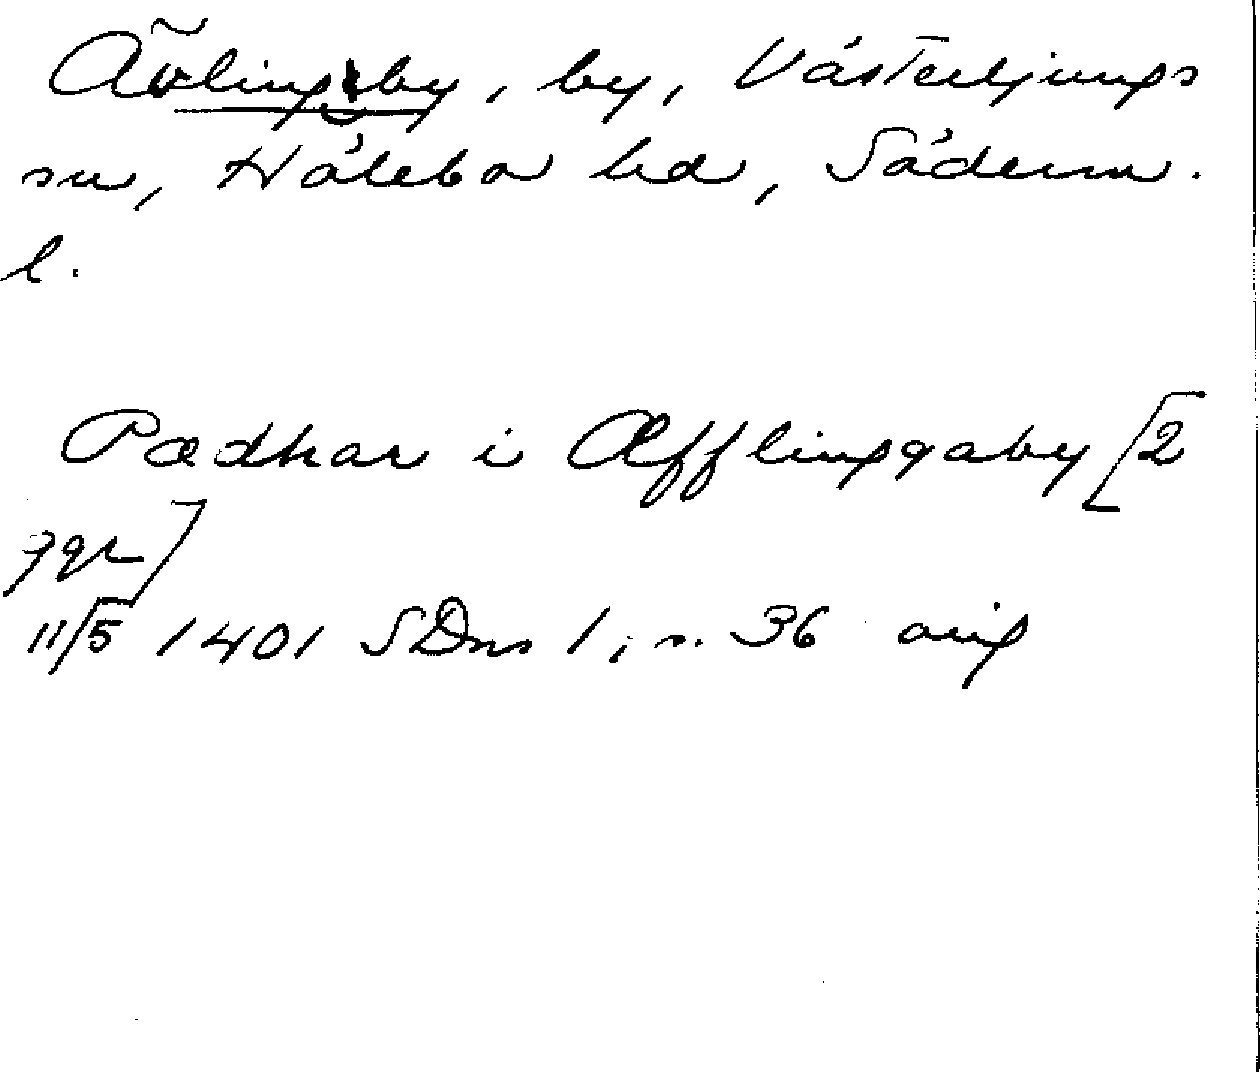 Ävlingeby, by, Västerljungs
sn, Hölebo hd, Söderm.
l.
Pædhar i Æfflinggaby [2
ggr]
11/5 1401 SDns 1, s. 36 orig